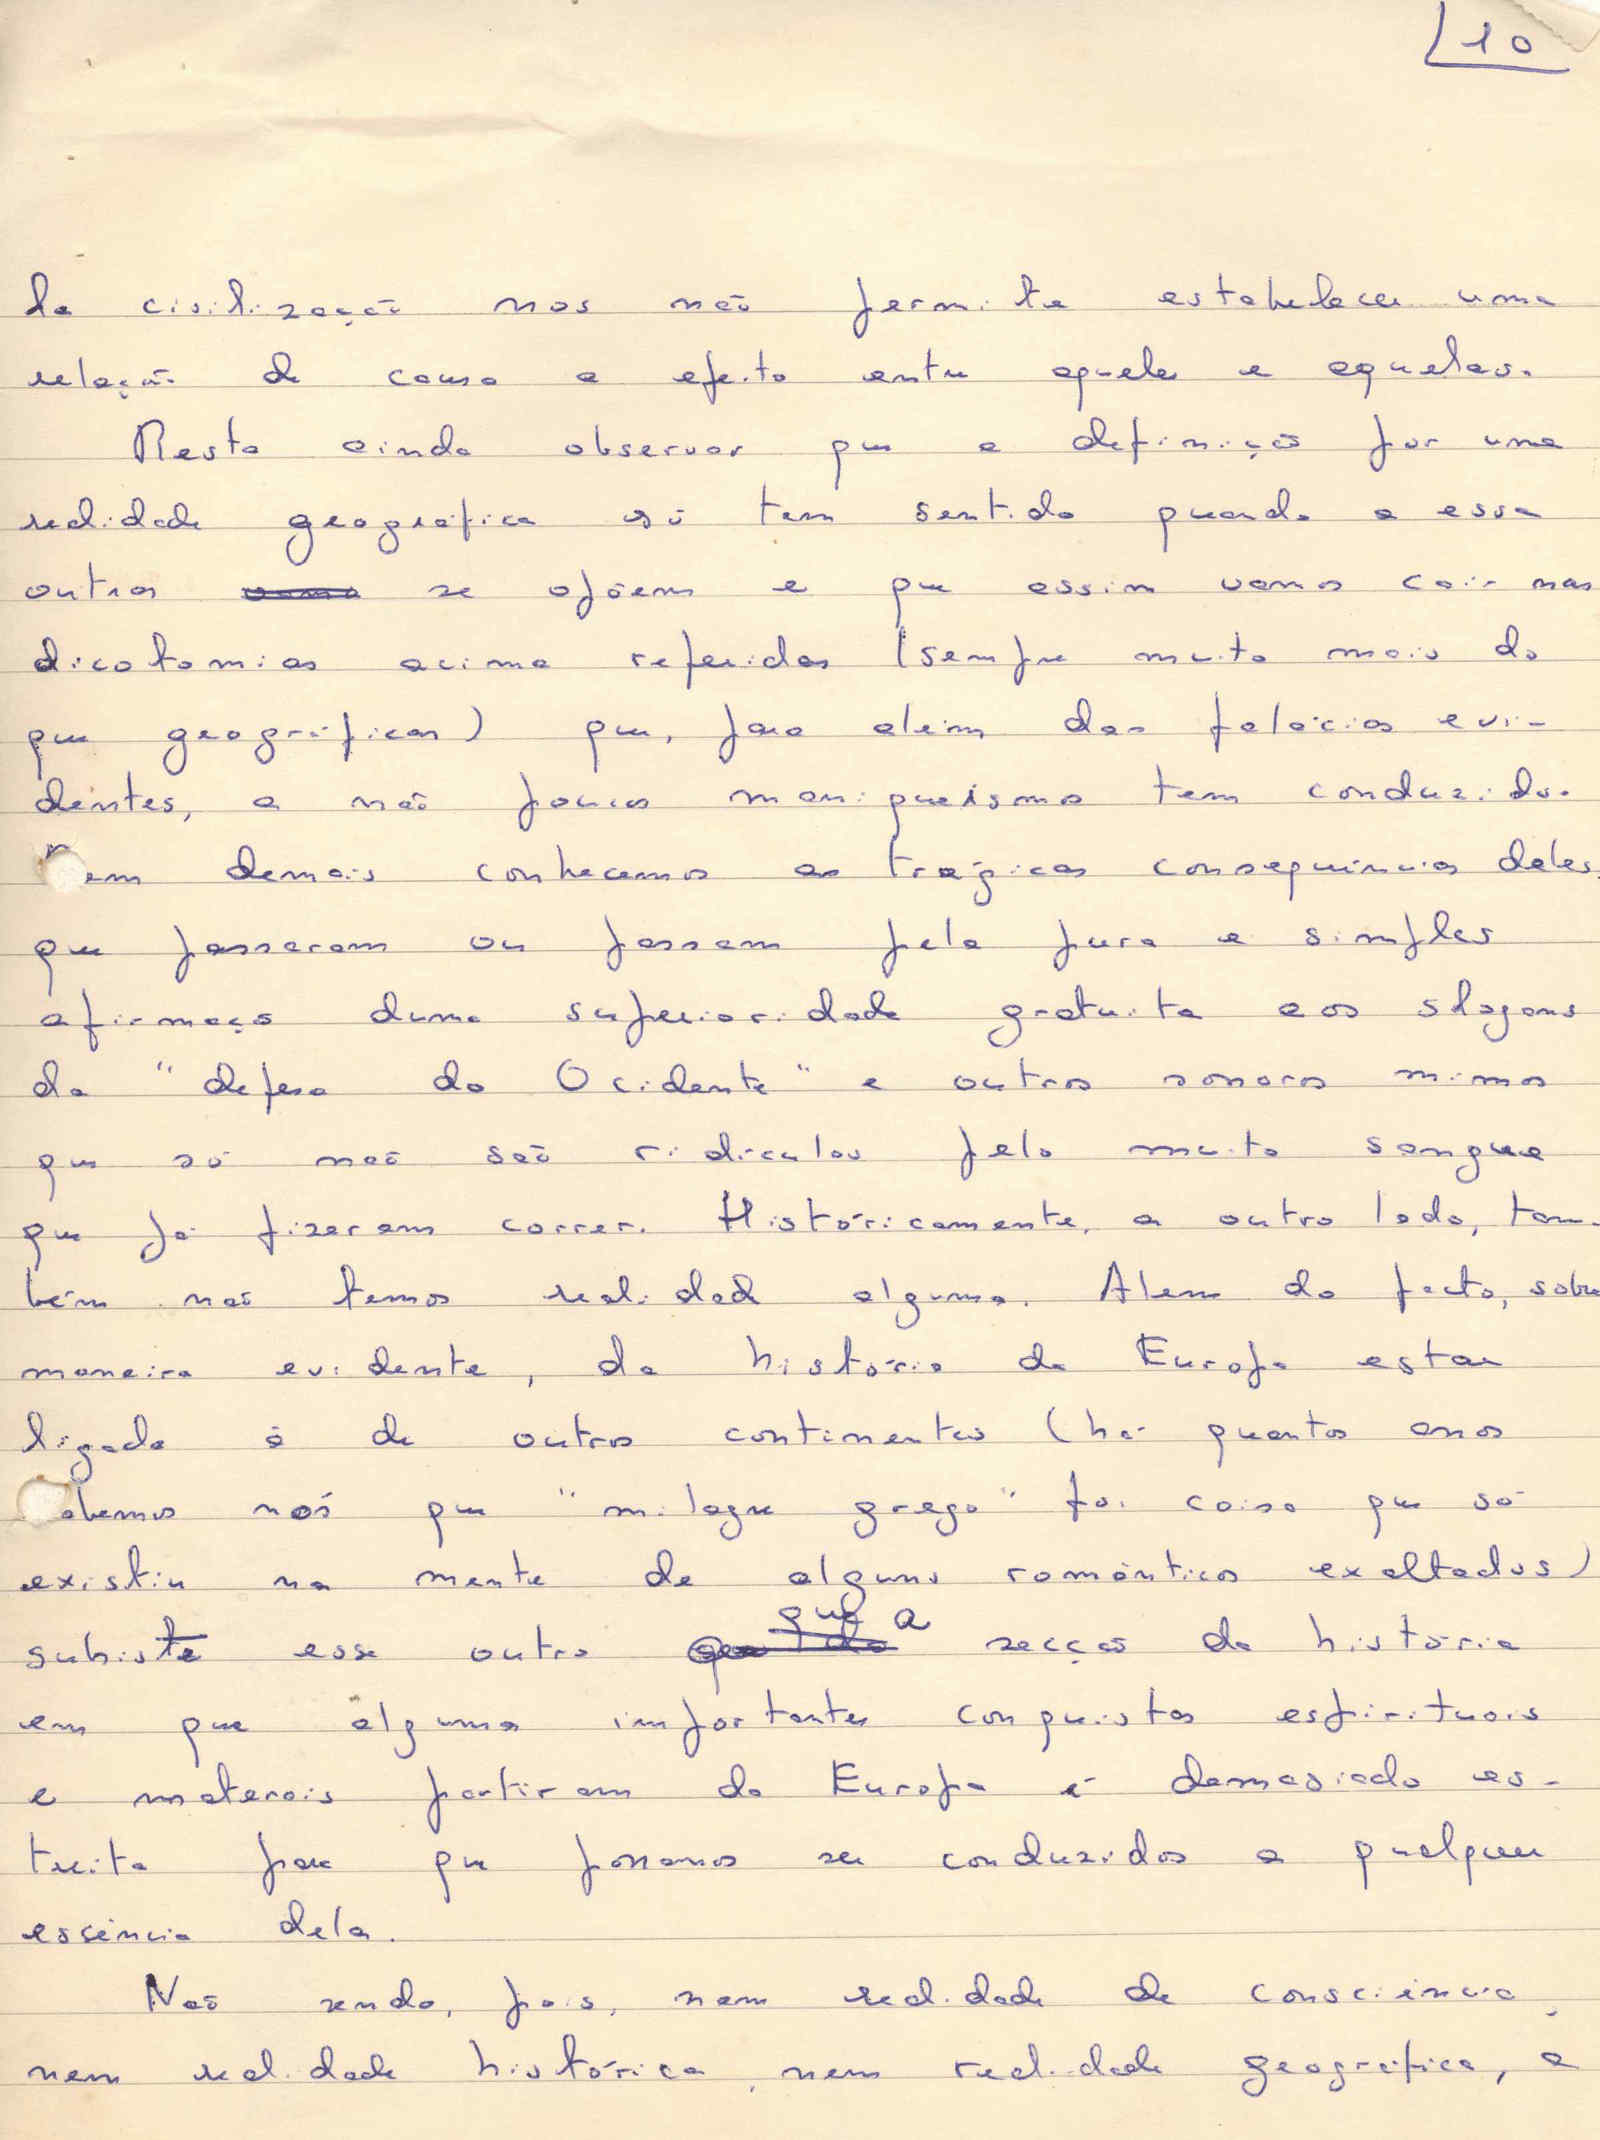 10
da civilização nos não permite estabelecer uma
relação de causa a efeito entre aqueles e aquelas.
Resta ainda observar que a definição por uma
realidade geográfica só tem sentido quando a essa
outras se opõem e que assim vamos cair nas
dicotomias acima referidas (sempre muito mais do
que geográficas) que, para além das falácias evi-
dentes, a não pouco maniqueísmo tem conduzido.
em demais conhecemos as trágicas consequências deles,
que passaram ou passam pela pura e simples
afirmação duma superioridade gratuita aos slogans
da "defesa do Ocidente" e outros sonoros mimos
que só não são ridículos pelo muito sangue
que já fizeram correr. Históricamente, a outro lado, tam-
bém não temos realidade alguma. Alem do facto, sobre
maneira evidente, da história da Europa estar
ligada à de outros continentes (há quantos anos
abemos nós que "milagre grego" foi coisa que só
existiu na mente de alguns românticos exaltados)
subiste esse outro que a secção da história
em que algumas importantes conquistas espirituais
e materais partiram da Europa é demasiado es-
treita para que possamos ser conduzidos a qualquer
essência dela.
Não sendo, pois, nem realidade de consciência,
nem realidade histórica, nem realidade geográfica, a